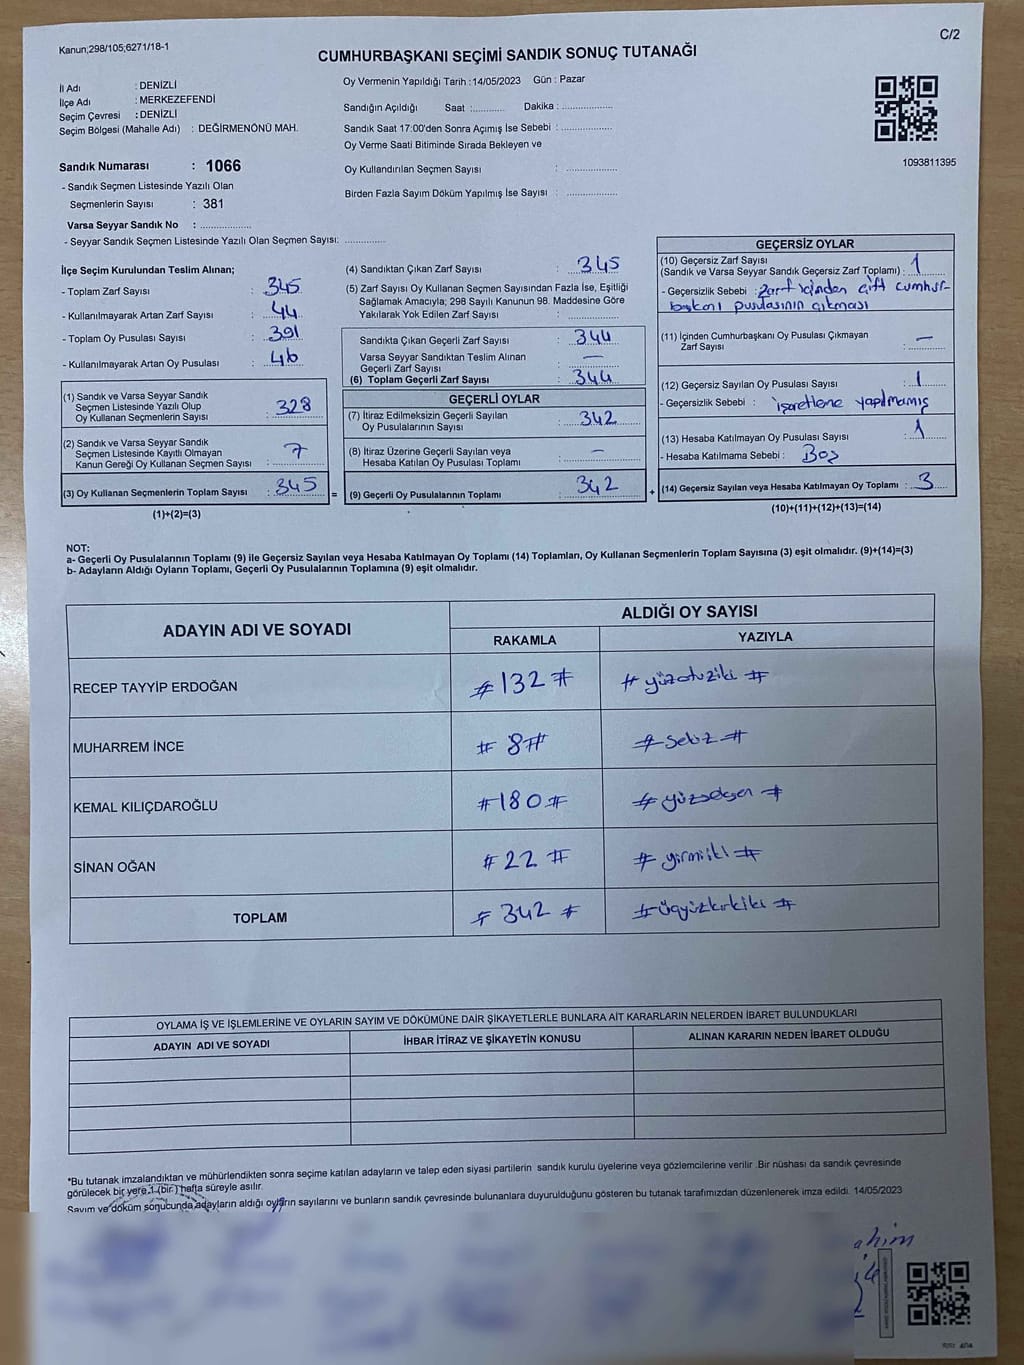 Kanun;298/105;6271/18-1
C/2
CUMHURBAŞKANI SEÇİMİ SANDIK SONUÇ TUTANAĞI
İl Adı : DENİZLİ
İlçe Adı : MERKEZEFENDİ
Seçim Çevresi : DENİZLİ
Seçim Bölgesi (Mahalle Adı) : DEĞİRMENÖNÜ MAH.
Sandık Numarası : 1066
- Sandık Seçmen Listesinde Yazılı Olan
Seçmenlerin Sayısı : 381
Varsa Seyyar Sandık No : ..................
- Seyyar Sandık Seçmen Listesinde Yazılı Olan Seçmen Sayısı: ..............
Oy Vermenin Yapıldığı Tarih :14/05/2023 Gün : Pazar
Sandığın Açıldığı Saat :........... Dakika : ..................
Sandık Saat 17:00'den Sonra Açımış İse Sebebi : ..................
Oy Verme Saati Bitiminde Sırada Bekleyen ve
Oy Kullandırılan Seçmen Sayısı : ..................
Birden Fazla Sayım Döküm Yapılmış İse Sayısı : ..................
1093811395
İlçe Seçim Kurulundan Teslim Alınan;
- Toplam Zarf Sayısı : 345
- Kullanılmayarak Artan Zarf Sayısı : 44
- Toplam Oy Pusulası Sayısı : 391
- Kullanılmayarak Artan Oy Pusulası : 46
(1) Sandık ve Varsa Seyyar Sandık
Seçmen Listesinde Yazılı Olup
Oy Kullanan Seçmenlerin Sayısı : 328
(2) Sandık ve Varsa Seyyar Sandık
Seçmen Listesinde Kayıtlı Olmayan
Kanun Gereği Oy Kullanan Seçmen Sayısı : 7
(3) Oy Kullanan Seçmenlerin Toplam Sayısı : 345 =
(1)+(2)=(3)
(4) Sandıktan Çıkan Zarf Sayısı : 345
(5) Zarf Sayısı Oy Kullanan Seçmen Sayısından Fazla İse, Eşitliği
Sağlamak Amacıyla; 298 Sayılı Kanunun 98. Maddesine Göre
Yakılarak Yok Edilen Zarf Sayısı : ..................
Sandıkta Çıkan Geçerli Zarf Sayısı : 344
Varsa Seyyar Sandıktan Teslim Alınan
Geçerli Zarf Sayısı : —
(6) Toplam Geçerli Zarf Sayısı : 344
GEÇERLİ OYLAR
(7) İtiraz Edilmeksizin Geçerli Sayılan
Oy Pusulalarının Sayısı : 342
(8) İtiraz Üzerine Geçerli Sayılan veya
Hesaba Katılan Oy Pusulası Toplamı : —
(9) Geçerli Oy Pusulalarının Toplamı : 342 +
GEÇERSİZ OYLAR
(10) Geçersiz Zarf Sayısı
(Sandık ve Varsa Seyyar Sandık Geçersiz Zarf Toplamı) : 1
- Geçersizlik Sebebi : Zarf içinden çift cumhur-
başkanı pusulasının çıkması
(11) İçinden Cumhurbaşkanı Oy Pusulası Çıkmayan
Zarf Sayısı : —
(12) Geçersiz Sayılan Oy Pusulası Sayısı : 1
- Geçersizlik Sebebi : işaretleme yapılmamış
(13) Hesaba Katılmayan Oy Pusulası Sayısı : 1
- Hesaba Katılmama Sebebi : Boş
(14) Geçersiz Sayılan veya Hesaba Katılmayan Oy Toplamı : 3
(10)+(11)+(12)+(13)=(14)
NOT:
a- Geçerli Oy Pusulalarının Toplamı (9) ile Geçersiz Sayılan veya Hesaba Katılmayan Oy Toplamı (14) Toplamları, Oy Kullanan Seçmenlerin Toplam Sayısına (3) eşit olmalıdır. (9)+(14)=(3)
b- Adayların Aldığı Oyların Toplamı, Geçerli Oy Pusulalarının Toplamına (9) eşit olmalıdır.
ADAYIN ADI VE SOYADI
ALDIĞI OY SAYISI
RAKAMLA YAZIYLA
RECEP TAYYİP ERDOĞAN # 132 # # yüzotuziki #
MUHARREM İNCE # 8# # Sekiz #
KEMAL KILIÇDAROĞLU #180# # yüzseksen #
SİNAN OĞAN # 22 # # yirmiiki #
TOPLAM # 342 # #üçyüzkırkiki #
OYLAMA İŞ VE İŞLEMLERİNE VE OYLARIN SAYIM VE DÖKÜMÜNE DAİR ŞİKAYETLERLE BUNLARA AİT KARARLARIN NELERDEN İBARET BULUNDUKLARI
ADAYIN ADI VE SOYADI İHBAR İTİRAZ VE ŞİKAYETİN KONUSU ALINAN KARARIN NEDEN İBARET OLDUĞU
*Bu tutanak imzalandıktan ve mühürlendikten sonra seçime katılan adayların ve talep eden siyasi partilerin sandık kurulu üyelerine veya gözlemcilerine verilir .Bir nüshası da sandık çevresinde
görülecek bir yere 1 (bir ) hafta süreyle asılır.
Sayım ve döküm sonucunda adayların aldığı oyların sayılarını ve bunların sandık çevresinde bulunanlara duyurulduğunu gösteren bu tutanak tarafımızdan düzenlenerek imza edildi. 14/05/2023